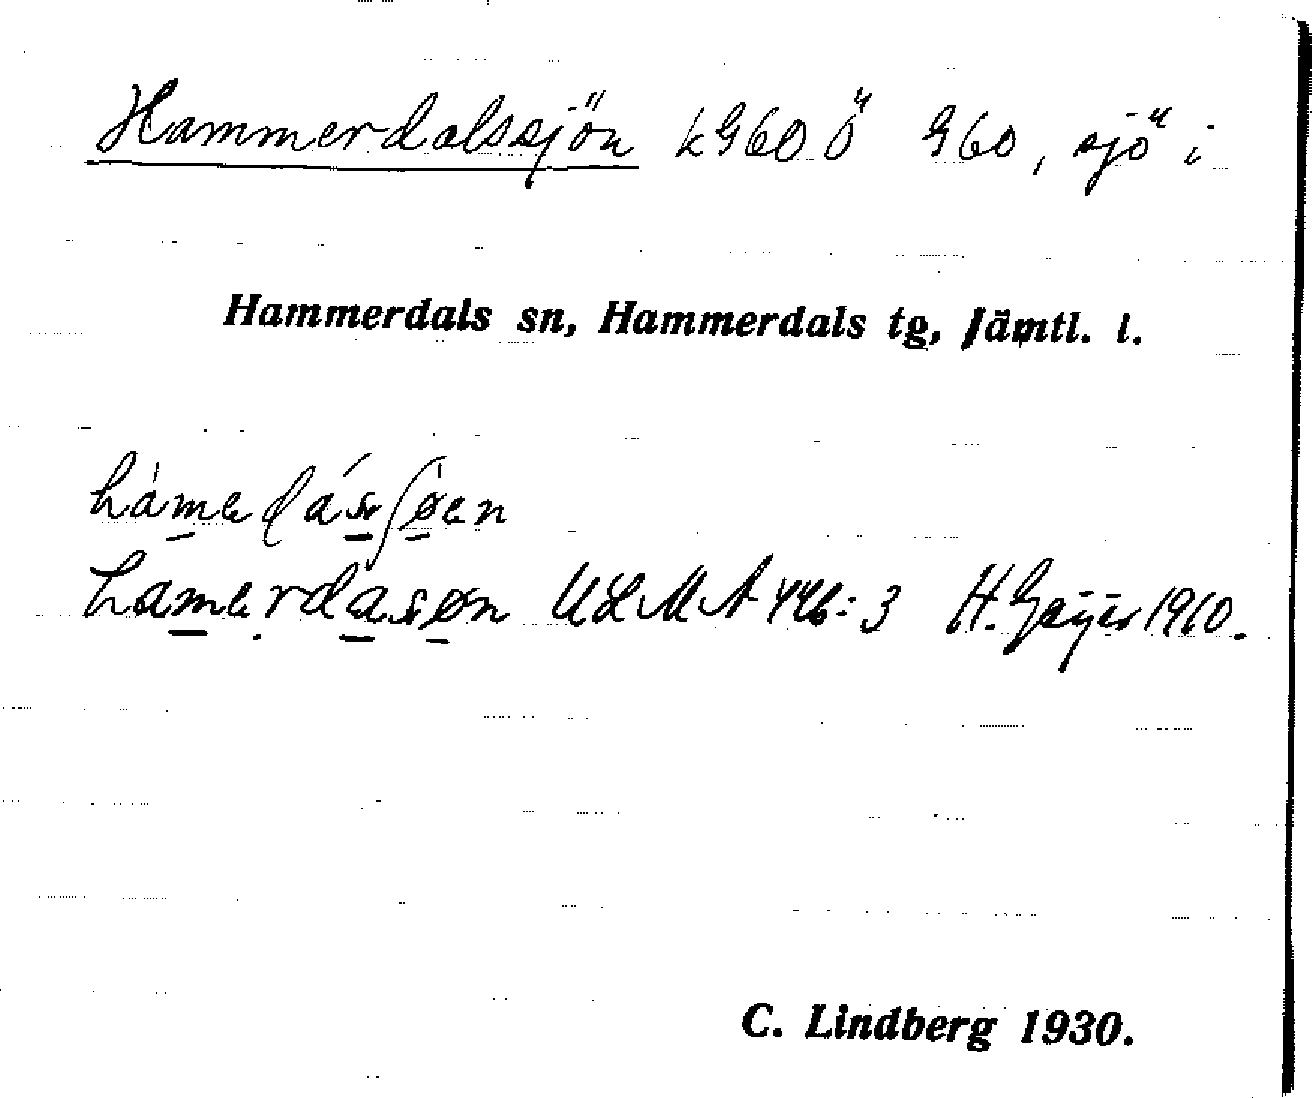 Hammerdalssjön k G60 ö G60, sjö i
Hammerdals sn, Hammerdals tg, Jämtl. l.
hamerdasøn ULMA 446:3 H. Geijer 1910.
C. Lindberg 1930.